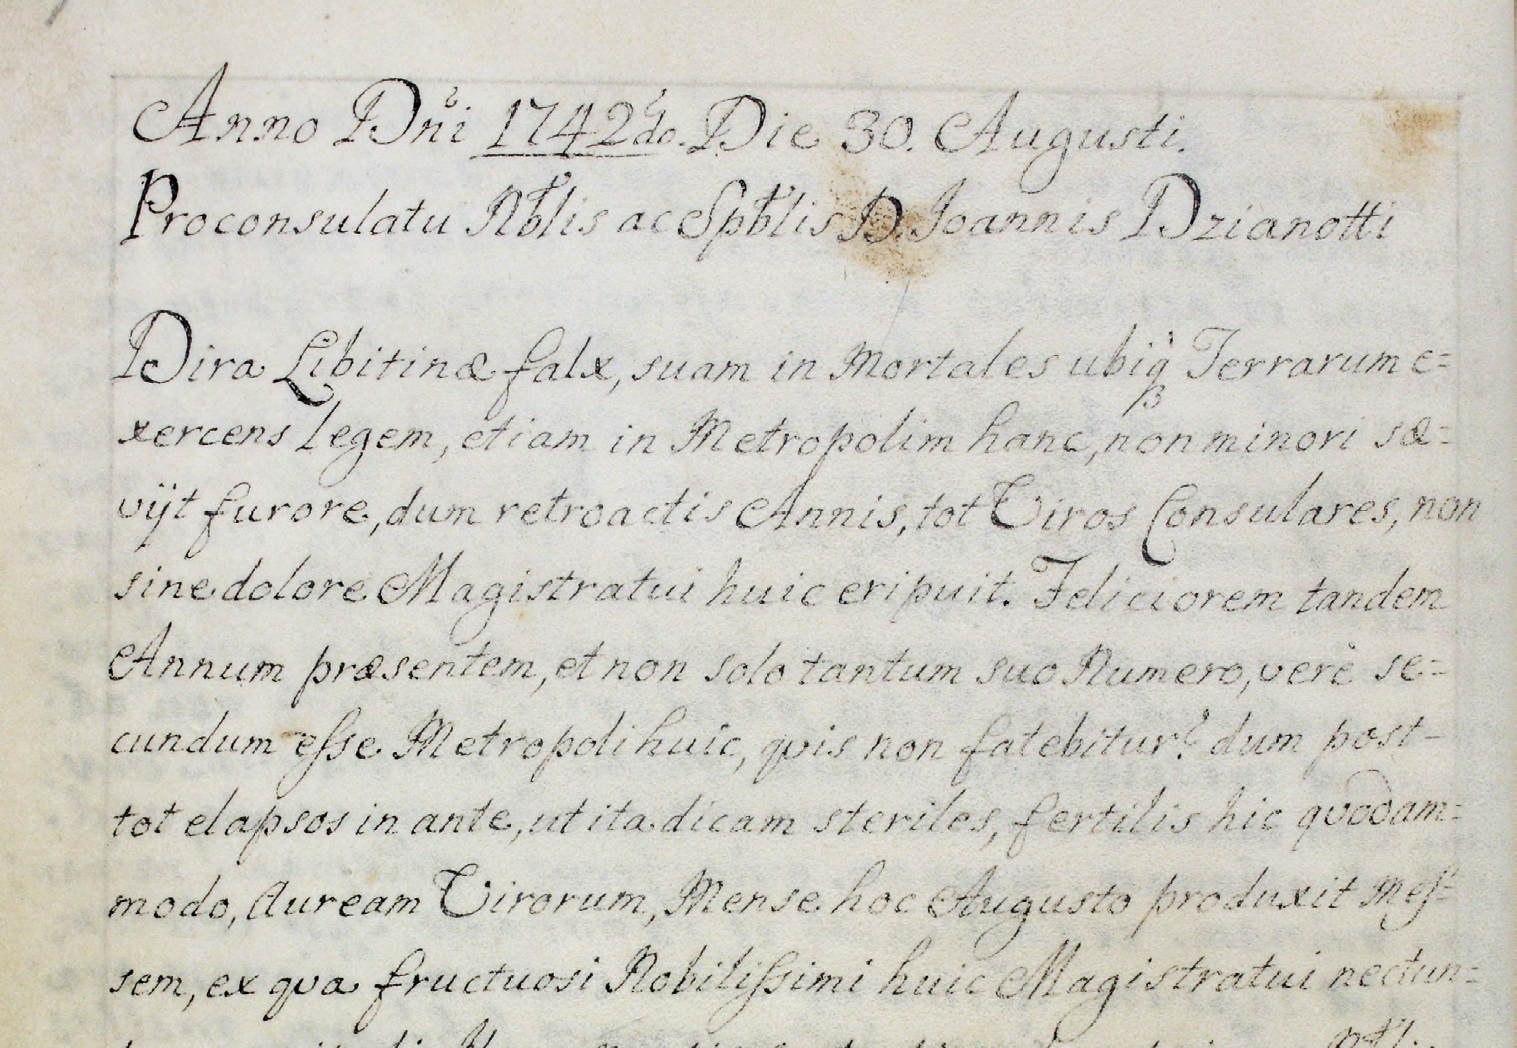 Anno Dñi 1742do. Die 30. Augusti.
Proconsulatu Nblis ac Spblis D. Joannis Dzianotti
Dira Libitinæ falx, suam in Mortales ubiq3 Terrarum e=
xercens legem, etiam in Metropolim hanc, non minori sæ=
vijt furore, dum retroactis Annis, tot Viros Consulares, non
sine dolore Magistratui huic eripuit. Feliciorem tandem
Annum præsentem, et non solo tantum suo Numero, verè se=
cundum eſse Metropoli huic, quis non fatebitur? dum post-
tot elapsos in ante, ut ita dicam steriles, fertilis hic quodam=
modo, Auream Virorum, Mense hoc Augusto produxit Meſ=
sem, ex qva fructuosi Nobiliſsimi huic Magistratui nectun=